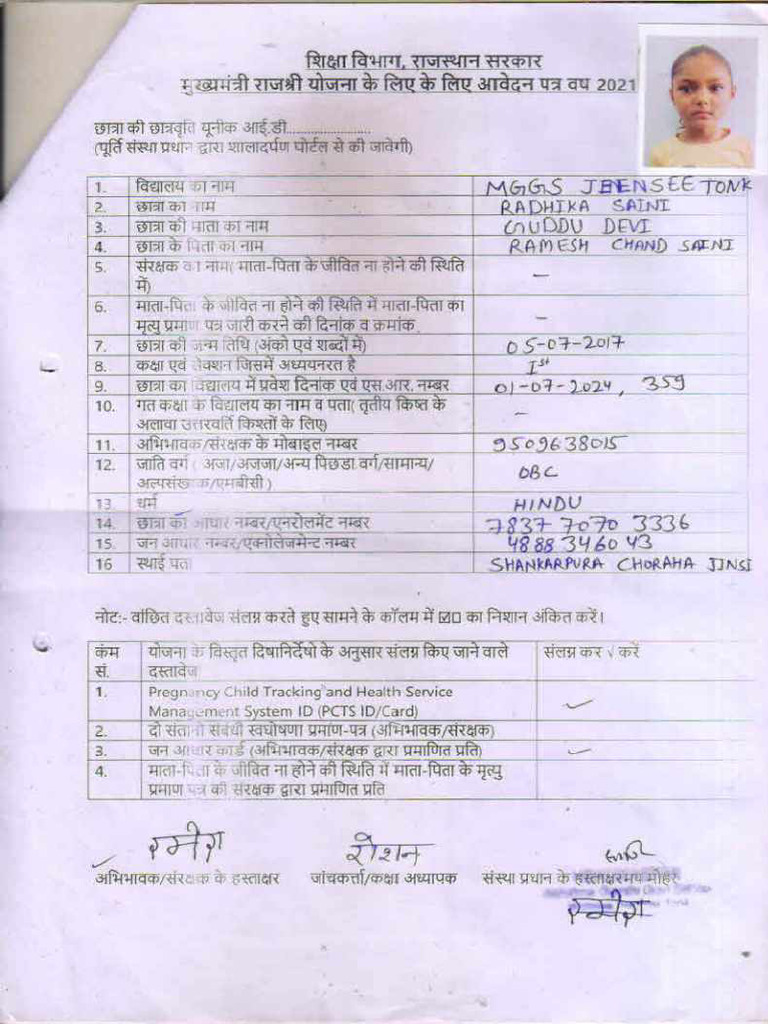 शिक्षा विभाग, राजस्थान सरकार
मुख्यमंत्री राजश्री योजना के लिए के लिए आवेदन पत्र वष 2021
छात्रा की छात्रवृति यूनीक आई.डी........................
(पूर्ति संस्था प्रधान द्वारा शालादर्पण पोर्टल से की जावेगी)
1. विद्यालय का नाम MGGS JEENSEE TONK
2. छात्रा का नाम RADHIKA SAINI
3. छात्रा की माता का नाम GUDDU DEVI
4. छात्रा के पिता का नाम RAMESH CHAND SAINI
5. संरक्षक का नाम( माता-पिता के जीवित ना होने की स्थिति
में) —
6. माता-पिता के जीवित ना होने की स्थिति में माता-पिता का
मृत्यु प्रमाण पत्र जारी करने की दिनांक व क्रमांक —
7. छात्रा की जन्म तिथि (अंको एवं शब्दों में) 05-07-2017
8. कक्षा एवं सेक्शन जिसमें अध्ययनरत है Ist
9. छात्रा का विद्यालय में प्रवेश दिनांक एवं एस.आर. नम्बर 01-07-2024, 359
10. गत कक्षा के विद्यालय का नाम व पता( तृतीय किष्त के
अलावा उत्तरवर्ति किश्तों के लिए) —
11. अभिभावक/संरक्षक के मोबाइल नम्बर 9509638015
12. जाति वर्ग ( अजा/अजजा/अन्य पिछडा वर्ग/सामान्य/
अल्पसंख्यक/एमबीसी ) OBC
13. धर्म HINDU
14. छात्रा का आधार नम्बर/एनरोलमेंट नम्बर 7837 7070 3336
15. जन आधार नम्बर/एक्नोलेजमेन्ट नम्बर 4888 3460 43
16 स्थाई पता SHANKARPURA CHORAHA JINSI
नोट:- वांछित दस्तावेज संलग्न करते हुए सामने के कॉलम में ☑☐ का निशान अंकित करें।
कंम योजना के विस्तृत दिषानिर्देषो के अनुसार संलग्न किए जाने वाले संलग्न कर √ करें
सं. दस्तावेज
1. Pregnancy Child Tracking and Health Service
Management System ID (PCTS ID/Card) ✓
2. दो संतानो संबंधी स्वघोषणा प्रमाण-पत्र (अभिभावक/संरक्षक)
3. जन आधार कार्ड (अभिभावक/संरक्षक द्वारा प्रमाणित प्रति) ✓
4. माता-पिता के जीवित ना होने की स्थिति में माता-पिता के मृत्यु
प्रमाण पत्र की संरक्षक द्वारा प्रमाणित प्रति
रमेश रोशन
✓ अभिभावक/संरक्षक के हस्ताक्षर जांचकर्ता/कक्षा अध्यापक संस्था प्रधान के हस्ताक्षरमय मोहर
रमेश